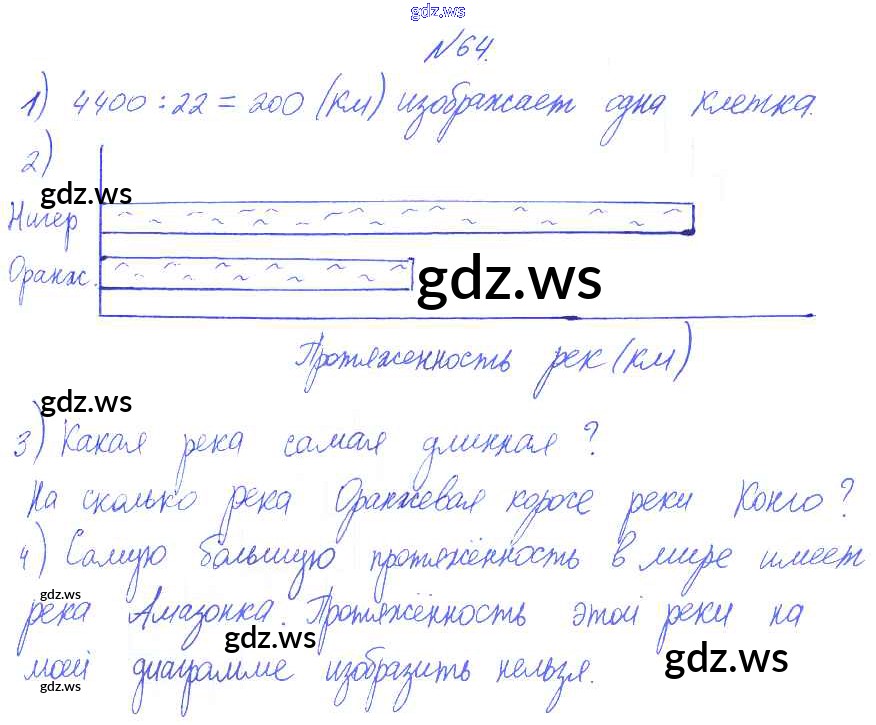 gdz.ws
№64.
1) 4400 : 22 = 200 (км) изображает одна клетка.
2)
gdz.ws
Нигер
Оранж.
gdz.ws
Протяженность рек (км)
gdz.ws
3) Какая река самая длинная?
На сколько река Оранжевая короче реки Конго?
4) Самую большую протяжённость в мире имеет
gdz.ws
река Амазонка. Протяжённость этой реки на
gdz.ws
моей диаграмме изобразить нельзя.
gdz.ws
gdz.ws